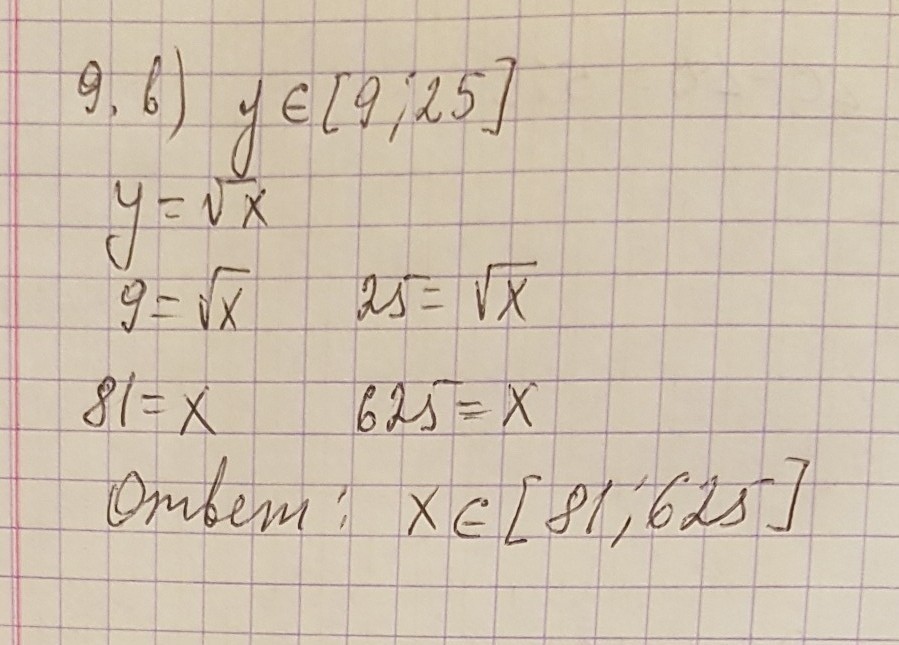 9. в) y ∈ [9; 25]
y = √x
9 = √x 25 = √x
81 = x 625 = x
Ответ: x ∈ [81; 625]